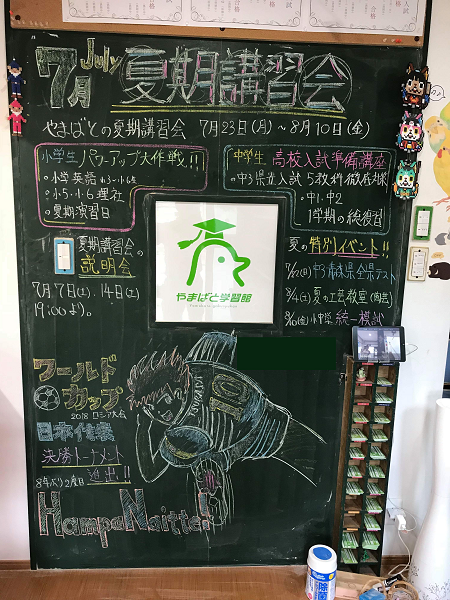 合格
7月 July 夏期講習会
やまばとの夏期講習会 7月23日(月)~8月10日(金)
小学生 パワーアップ大作戦!!
・小学英語 小3~小6
・小5・小6理社
・夏期演習日
中学生 高校入試準備講座
・中3県立入試5教科徹底対策
・中1・中2
1学期の総復習
夏期講習会の
説明会
7月7日(土).14日(土)
19:00より。
やまばと学習館
夏の特別イベント!!
夏の工芸教室(陶芸)
小中学 統一模試
ワールド
カップ
2018 ロシア大会
日本代表
決勝トーナメント
進出!!
8年ぶり2度目
HampaNaitte!
除菌